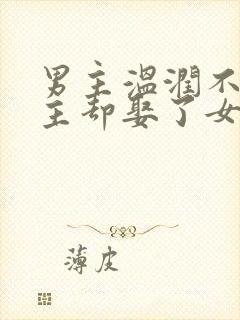 男主温润不
主却娶了女
薄皮